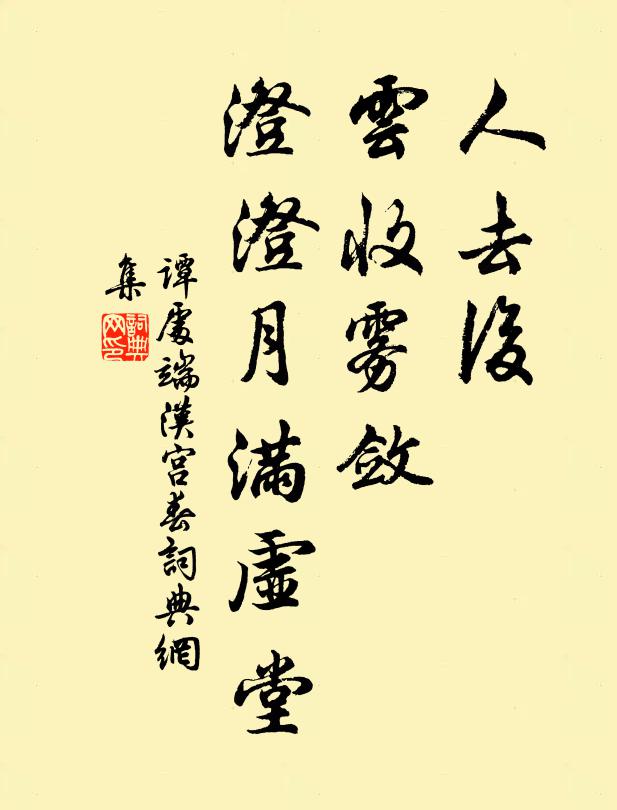 人去後
雲收雾斂
澄澄月满虚堂
譚處端漢宫春詞典網
集
詞典網印